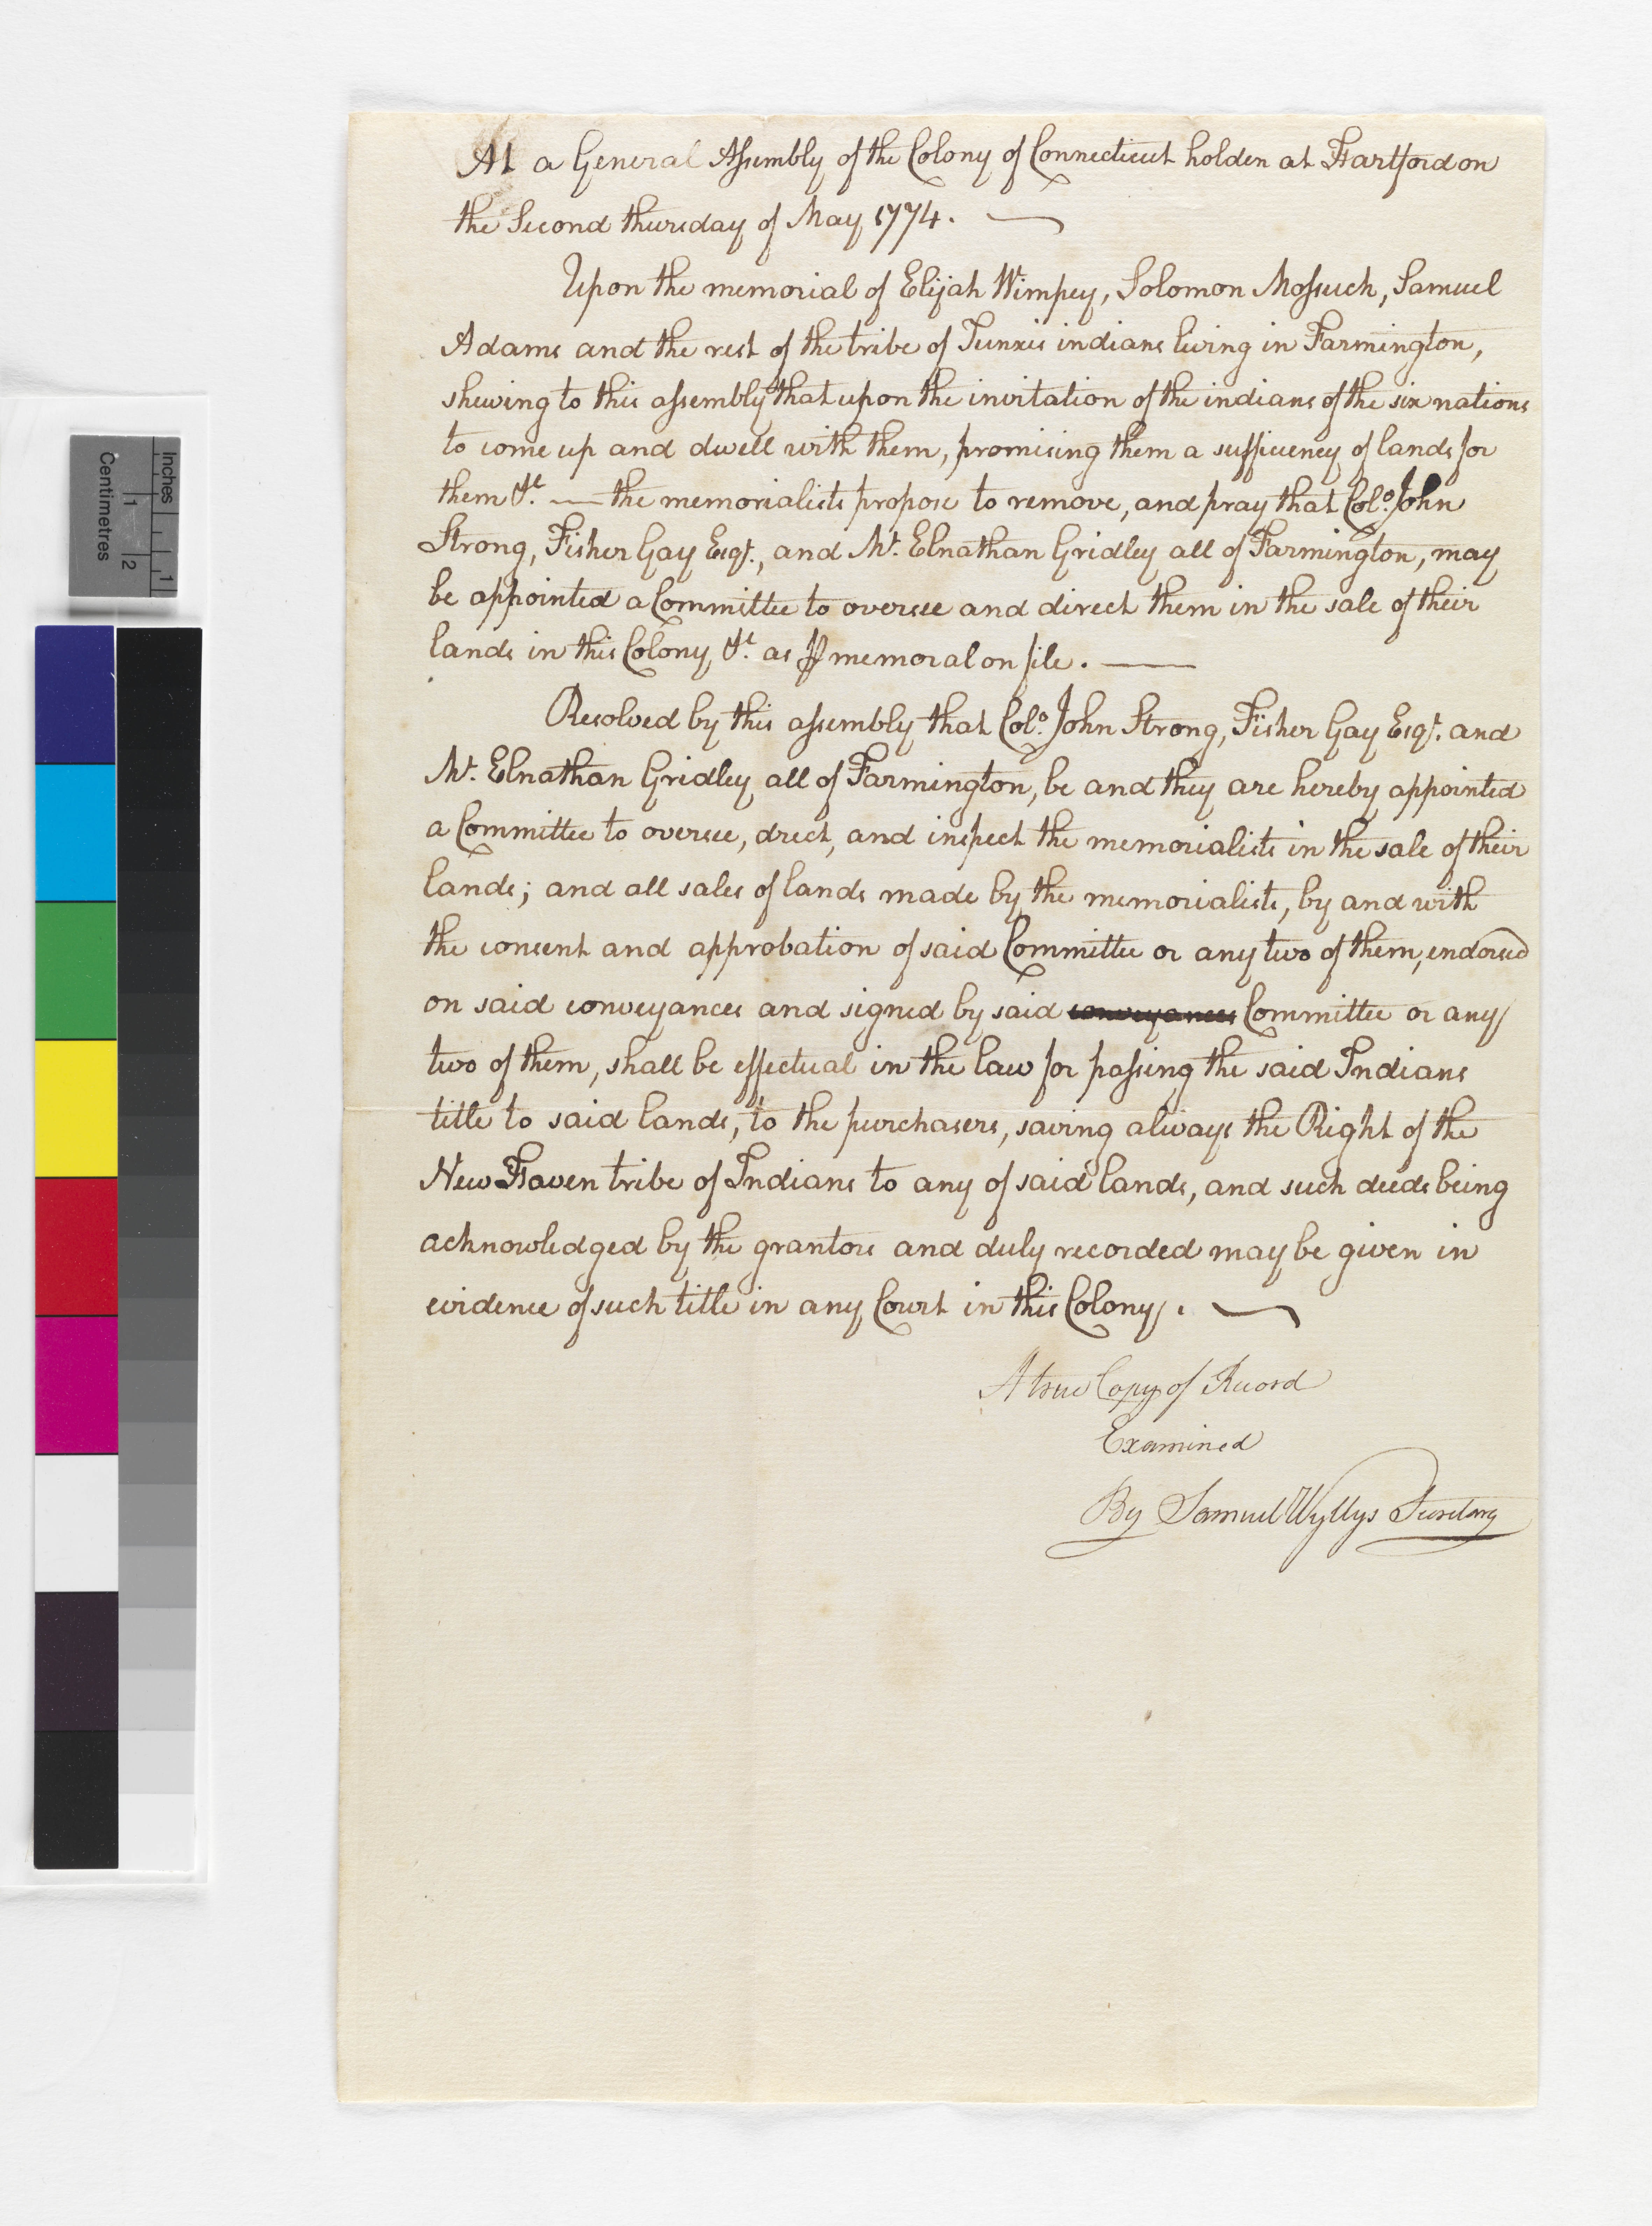 At a General Assembly of the Colony of Connecticut holden at Hartford on
the Second thursday of May 1774.
Upon the memorial of Elijah Wimpey, Solomon Mossuck, Samuel
Adams and the rest of the tribe of Tunxis indians living in Farmington,
shewing to this assembly that upon the invitation of the indians of the six nations
to come up and dwell with them, promising them a sufficiency of lands for
them &c. — the memorialists propose to remove, and pray that Colo. John
Strong, Fisher Gay Esqr., and Mr. Elnathan Gridley all of Farmington, may
be appointed a Committee to oversee and direct them in the sale of their
lands in this Colony, &c. as ⅌ memoral on file. —
Resolved by this assembly that Colo. John Strong, Fisher Gay Esqr. and
Mr. Elnathan Gridley all of Farmington, be and they are hereby appointed
a Committee to oversee, drect, and inspect the memorialists in the sale of their
lands; and all sales of lands made by the memorialists, by and with
the consent and approbation of said Committee or any two of them, endorsed
on said conveyances and signed by said conveyances Committee or any
two of them, shall be effectual in the law for passing the said Indians
title to said lands, to the purchasers, saving always the Right of the
New Haven tribe of Indians to any of said lands, and such deeds being
acknowledged by the grantors and duly recorded may be given in
evidence of such title in any Court in this Colony.
A true Copy of Record
Examined
By Samuel Wyllys Secretary
Inches
1
Centimetres
1
2